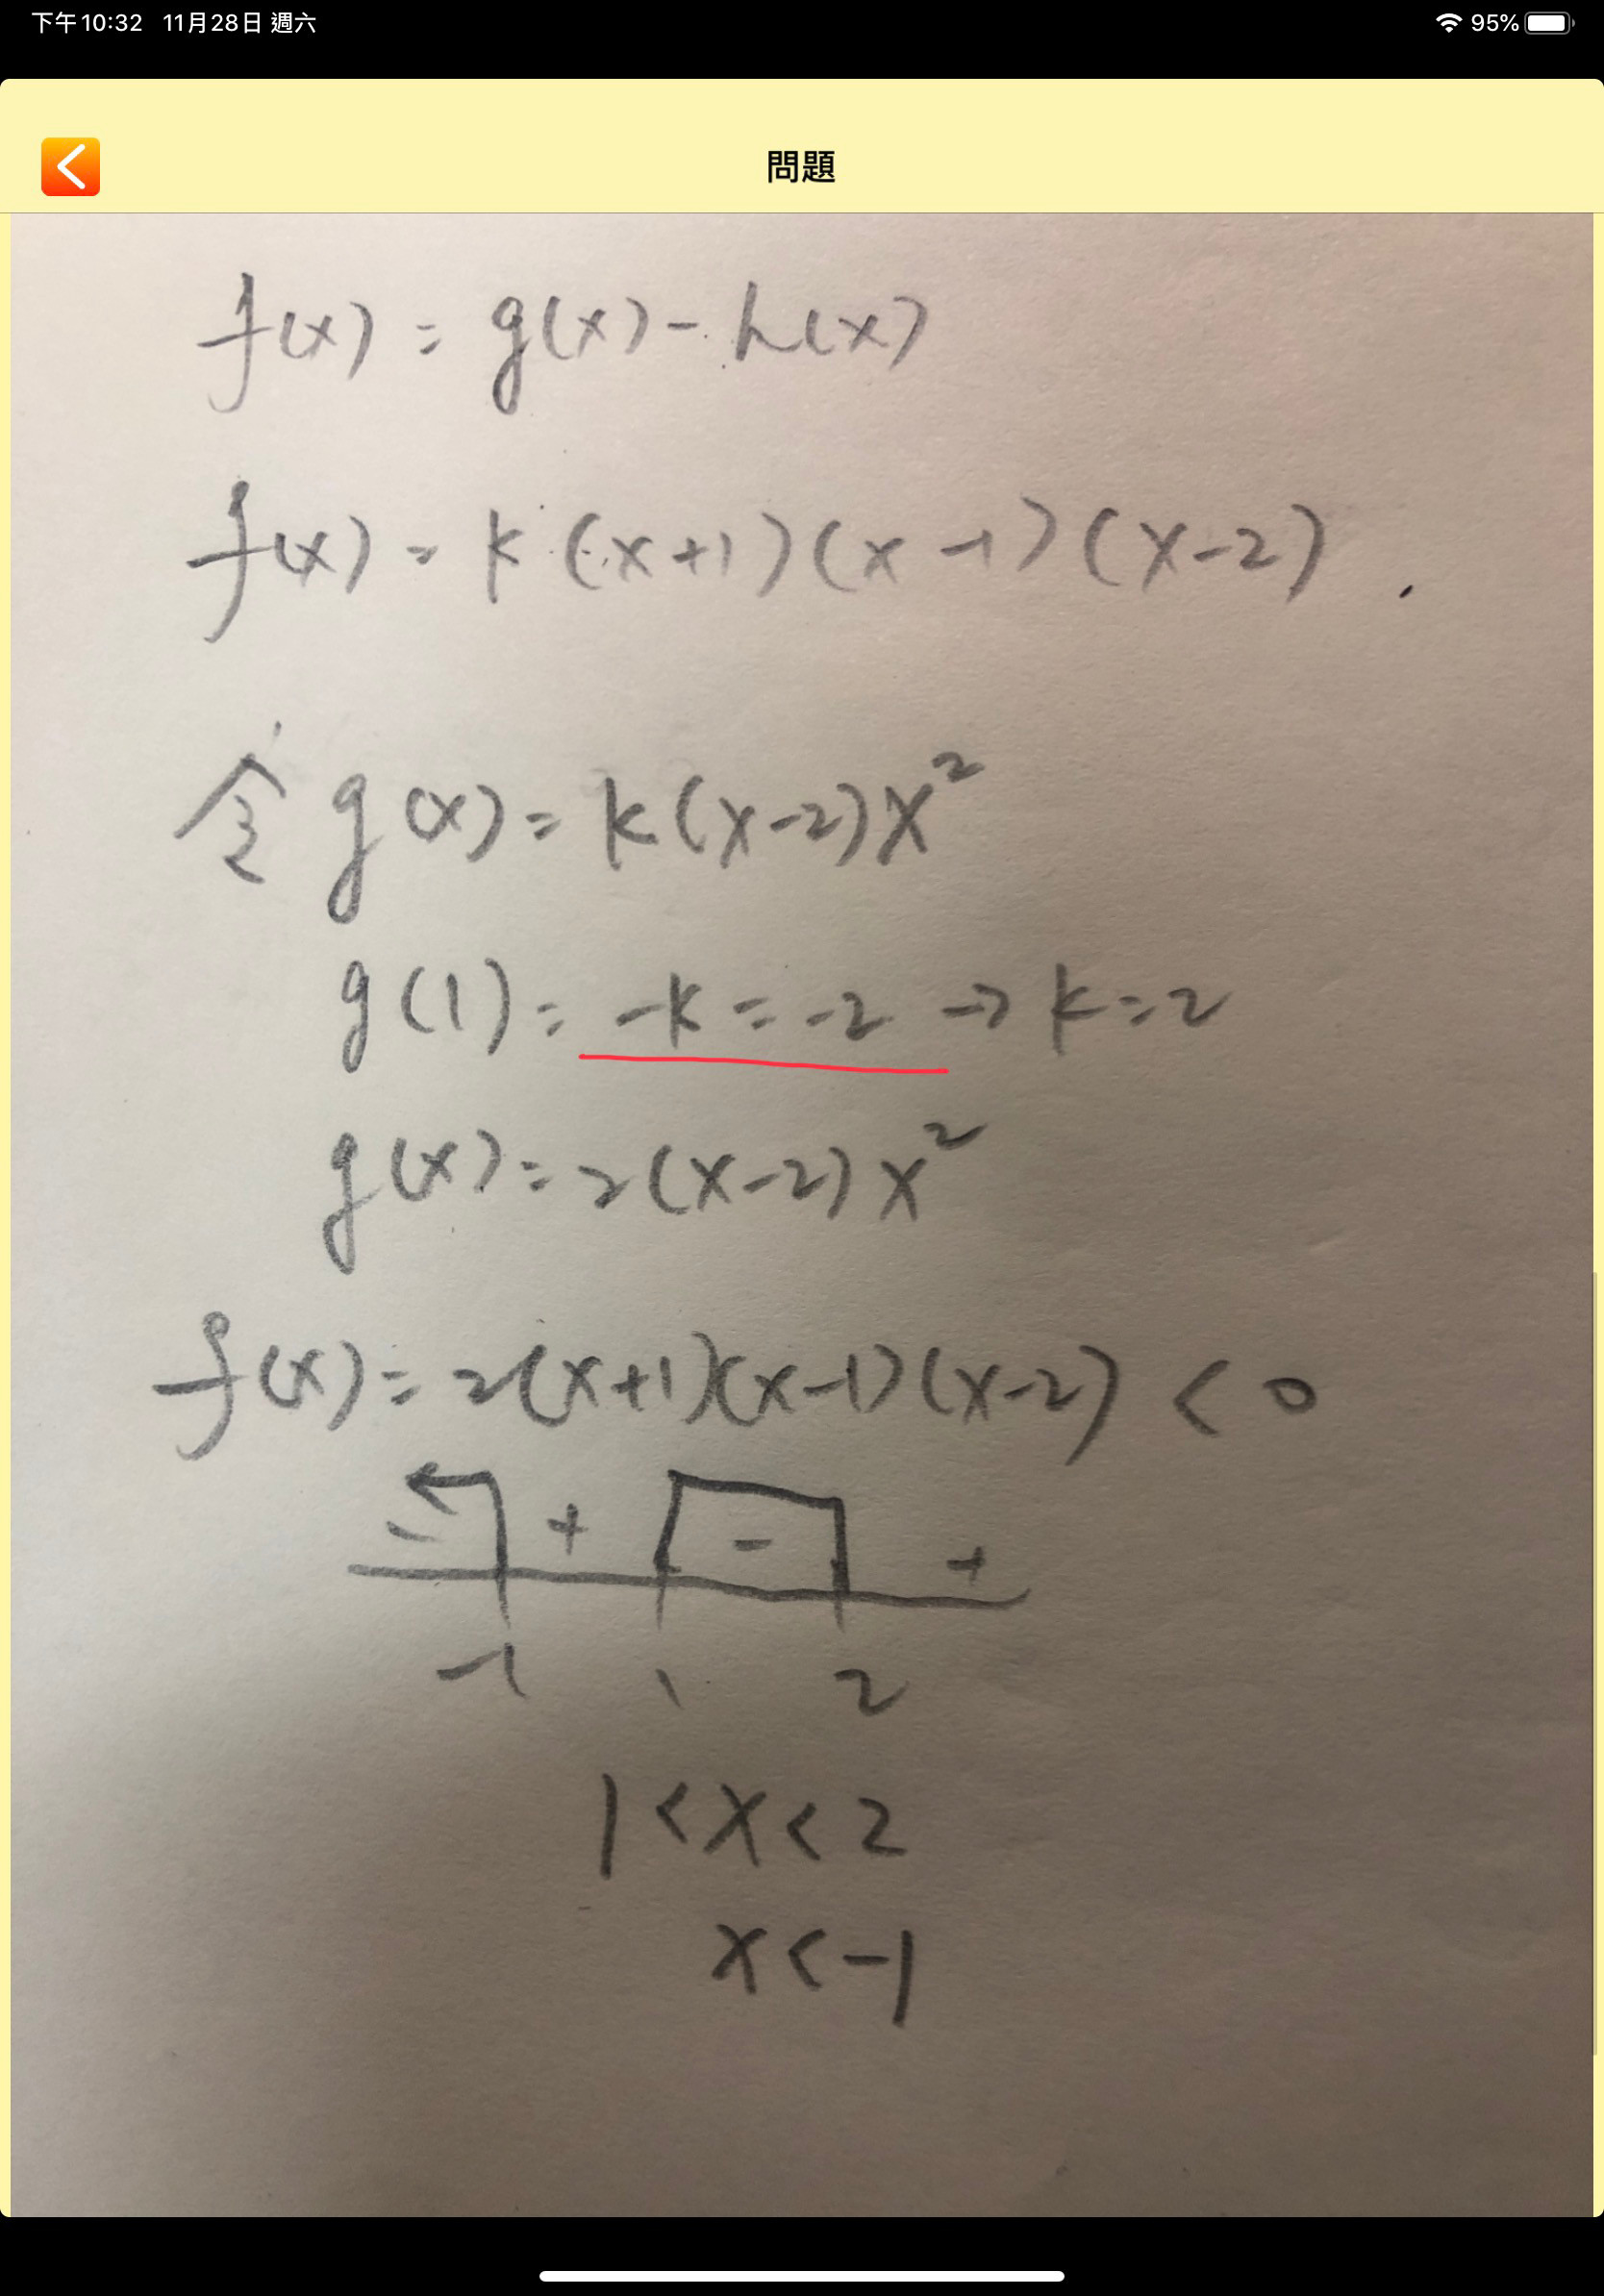 下午10:32 11月28日 週六 95%
問題
f(x) = g(x) - h(x)
f(x) = k(x+1)(x-1)(x-2)
令 g(x) = k(x-2)x²
g(1) = -k = -2 → k = 2
g(x) = 2(x-2)x²
f(x) = 2(x+1)(x-1)(x-2) < 0
- + - +
-1 1 2
1 < x < 2
x < -1